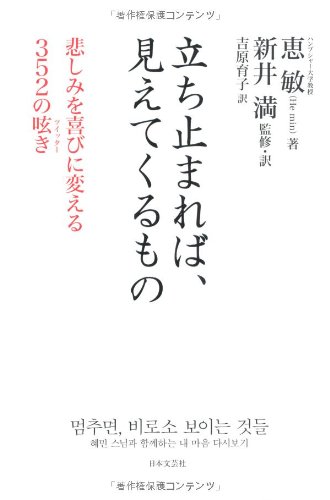 「著作権保護コンテンツ」
ハンプシャー大学教授
恵 敏 (He min) 著
新井 満 監修・訳
吉原育子 訳
立ち止まれば、
見えてくるもの
悲しみを喜びに変える
352の呟き
ツイッター
멈추면, 비로소 보이는 것들
혜민 스님과 함께하는 내 마음 다시보기
日本文芸社
「著作権保護コンテンツ」